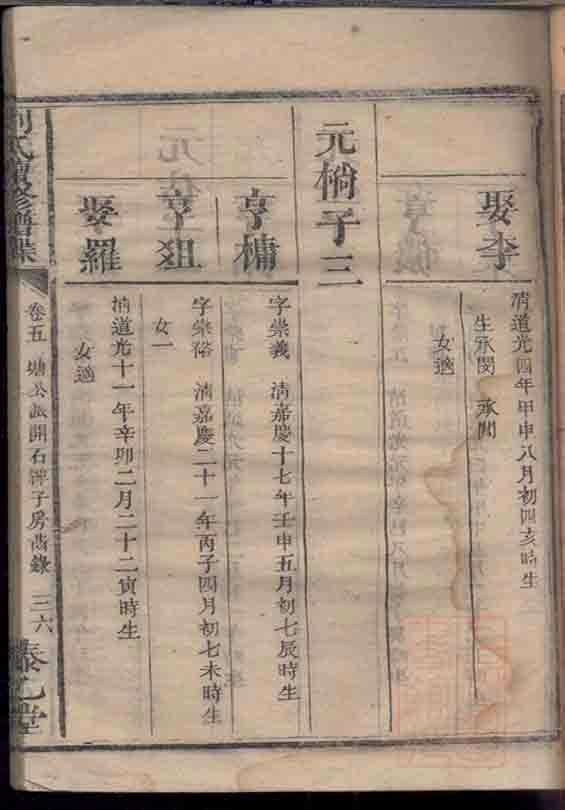 娶李
清道光四年甲申八月初四亥時生
生承閔 承閗
女適
元椭子三
亨槦
字崇義 清嘉慶十七年壬申五月初七辰時生
亨爼
字崇俗 清嘉慶二十一年丙子四月初七未時生
女一
娶羅
清道光十一年辛卯二月二十二寅時生
女適
氏續修譜牒
卷五 塘公派開石 子房齒錄 三六
堂